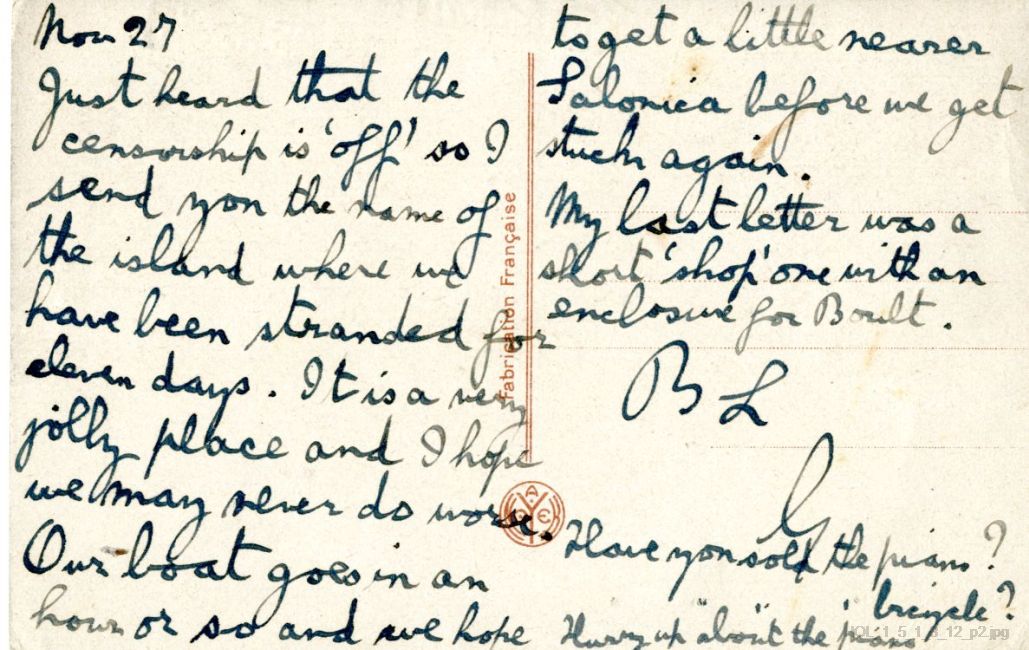 Nov 27
Just heard that the
censorship is 'off' so I
send you the name of
the island where we
have been stranded for
eleven days. It is a very
jolly place and I hope
we may never do worse.
Our boat goes in an
hour or so and we hope
Fabrication Française
to get a little nearer
Salonica before we get
stuck again.
My last letter was a
short 'shop' one with an
enclosure for Boult.
B L
G
Have you sold the piano?
bicycle?
Hurry up "about" the piano
JOL_1_5_1_3_12_p2.jpg